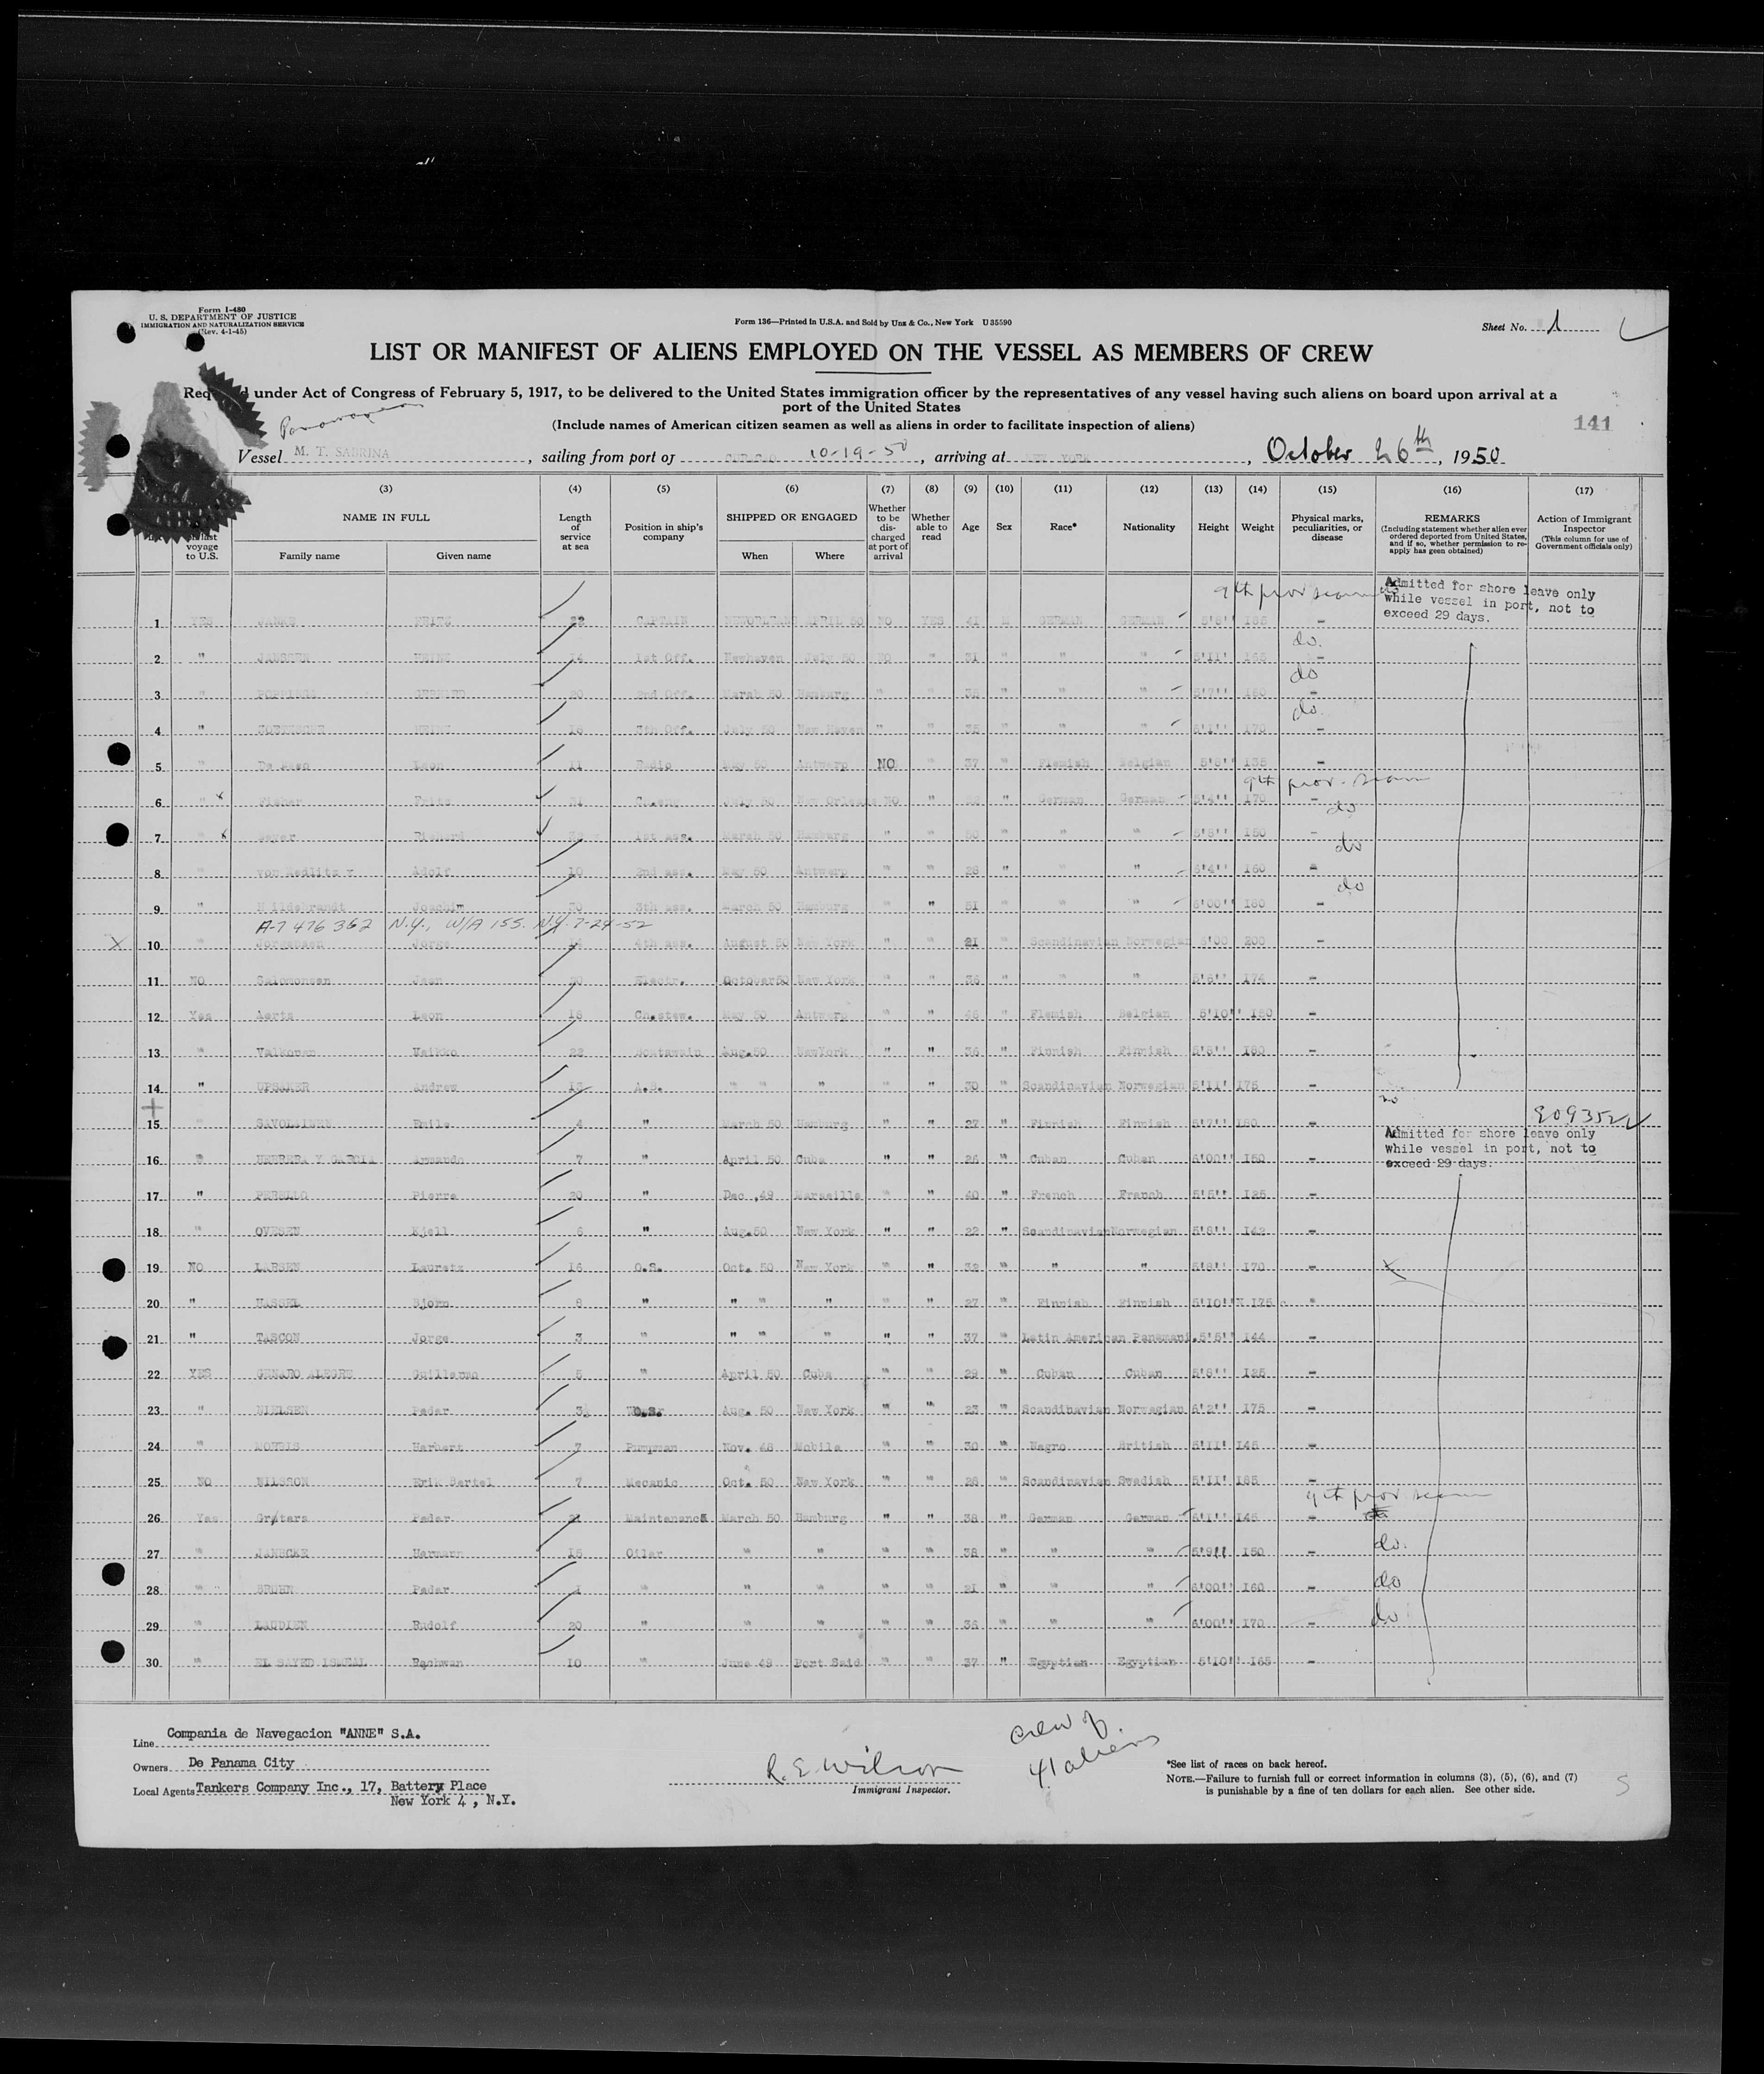 Form I-480
U. S. DEPARTMENT OF JUSTICE
IMMIGRATION AND NATURALIZATION SERVICE
(Rev. 4-1-45)
Form 136—Printed in U.S.A. and Sold by Unz & Co., New York U 35590
Sheet No. 1
LIST OR MANIFEST OF ALIENS EMPLOYED ON THE VESSEL AS MEMBERS OF CREW
under Act of Congress of February 5, 1917, to be delivered to the United States immigration officer by the representatives of any vessel having such aliens on board upon arrival at a
port of the United States
(Include names of American citizen seamen as well as aliens in order to facilitate inspection of aliens)
141
Vessel M. T. SABRINA, sailing from port of 10-19-50, arriving at NEW YORK, October 26th, 1950
(3) (4) (5) (6) (7) (8) (9) (10) (11) (12) (13) (14) (15) (16) (17)
voyage to U.S.
NAME IN FULL
Family name Given name
Length of service at sea
Position in ship's company
SHIPPED OR ENGAGED
When Where
Whether to be discharged at port of arrival
Whether able to read
Age Sex Race* Nationality Height Weight
Physical marks, peculiarities, or disease
REMARKS
(Including statement whether alien ever ordered deported from United States, and if so, whether permission to reapply has geen obtained)
Action of Immigrant Inspector
(This column for use of Government officials only)
Admitted for shore leave only
While vessel in port, not to
exceed 29 days.
1 YES 22 CAPTAIN APRIL 50 NO YES 41 GERMAN GERMAN 5'8'' –
2 " JANSSEN 14 1st Off. Newhaven July 50 NO " 31 " " " 5'11' 165 – do.
3 " 20 2nd Off. March 50 Hamburg " " 35 " " " 5'7'' – do
4 " 3th Off. July 50 New Haven " " 35 " " " 170 – do
5 " Leon 11 Radio May 50 Antwerp NO " 37 " Flemish Belgian 5'8'' 135 –
6 " Fisher Fritz July 50 New Orleans NO " " German German 5'4'' 170 –
7 " Richard 1st ass. March 50 Hamburg " " 50 " " " 5'8'' 150 – do
8 " Adolf 10 2nd ass. May 50 Antwerp " " 28 " " " 6'4'' 160 – do
9 " Hildebrandt Joachim 30 3th ass. March 50 Hamburg " " 51 " " " 6'00'' 160 – do
A-7 476 362 N.Y., W/A 155. N.Y. 7-24-52
10 " Jorgensen Jorge 4th ass. August 50 New York " " 21 " Scandinavian Norwegian 6'00 200 –
11 NO Salomonsen Jean 20 Electr. October50 New York " " 36 " " " 5'6'' 174 –
12 Yes Aerts Leon 18 Ch.stew. May 50 Antwerp " " 45 " Flemish Belgian 5'10'' 180 –
13 " Valkonen Veikko 22 Boatswain Aug.50 NewYork " " 36 " Finnish Finnish 5'5'' 180 –
14 " Andrew 13 A.B. " " " " " 30 " Scandinavian Norwegian 5'11' 175 –
15 " SAVOLAINEN 4 " March 50 Hamburg " " 27 " Finnish Finnish 5'7'' 180 –
Admitted for shore leave only
While vessel in port, not to
exceed 29 days.
16 " HERRERA Y GARCIA Armando 7 " April 50 Cuba " " 26 " Cuban Cuban 6'00'' 160 –
17 " PERELLO Pierre 20 " Dec ,49 Marseille " " 40 " French French 5'5'' 125 –
18 " OVESEN Kjell 6 " Aug.50 New York " " 22 " Scandinavian Norwegian 5'6'' 142 –
19 NO LARSEN Lauretz 16 O.S. Oct. 50 New York " " 32 " " " 5'8'' 170 –
20 " HASSEL Bjorn 8 " " " " " " 27 " Finnish Finnish 5'10'' 175 "
21 " TASCON Jorge 3 " " " " " " 37 " Latin American Panamani. 5'5'' 144 –
22 YES GENARO ALEGRE Guillermo 5 " April 50 Cuba " " 29 " Cuban Cuban 5'8'' 125 –
23 " NIELSEN Peder 3½ O.S. Aug. 50 New York " " 23 " Scandinavian Norwegian 6'2'' 175 –
24 " MORRIS Herbert 7 Pumpman Nov. 48 Mobile " " 30 " Negro British 5'11' 145 –
25 NO NILSSON Erik Bertel 7 Mecanic Oct. 50 New York " " 28 " Scandinavian Swedish 5'11' 185 –
26 Yes Peder 21 Maintenance March 50 Hamburg " " 38 " German German 6'1'' 145 –
27 " JANECKE Hermann 15 Oiler " " " " 38 " " " 5'9'' 150 – do.
28 " BRUHN Peder 1 " " " " " 21 " " " 6'00'' 160 – do
29 " LAUDIEN Rudolf 20 " " " " " 36 " " " 6'00'' 170 – do
30 " EL SAYED ISMEAL Rachwan 10 " June 49 Port Said " " 37 " Egyptian Egyptian 5'10'' 165 –
Line Compania de Navegacion "ANNE" S.A.
Owners De Panama City
Local Agents Tankers Company Inc., 17, Battery Place
New York 4 , N.Y.
R. E. Wilson
Immigrant Inspector.
crew of
41 aliens
*See list of races on back hereof.
NOTE.—Failure to furnish full or correct information in columns (3), (5), (6), and (7)
is punishable by a fine of ten dollars for each alien. See other side.